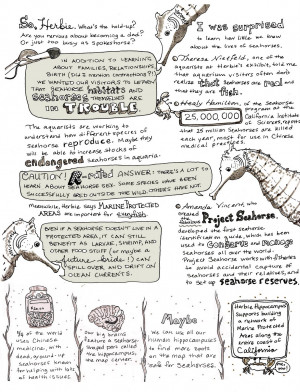 So, Herbie, What's the hold-up?
Are you nervous about becoming a dad?
Or just too busy as Spokeshorse?
IN ADDITION TO LEARNING
ABOUT FAMILIES, RELATIONSHIPS,
BIRTH (DID I MENTION CONTRACTIONS?!)
WE WANTED OUR VISITORS TO LEARN
THAT SEAHORSE habitats AND
seahorses THEMSELVES ARE
IN TROUBLE
The aquariums are working to
understand how different species of
seahorse reproduce. Maybe they
will be able to increase stocks of
endangered seahorses in aquaria.
CAUTION! R-rated ANSWER: THERE'S A LOT TO
LEARN ABOUT SEAHORSE SEX. SOME SPECIES HAVE BEEN
SUCCESSFULLY BRED OUTSIDE THE WILD. OTHERS HAVE NOT.
Meanwhile, Herbie says MARINE PROTECTED
AREAS are important for everyfish.
EVEN IF A SEAHORSE DOESN'T LIVE IN A
PROTECTED AREA, IT CAN STILL
BENEFIT AS LARVAE, SHRIMP, AND
OTHER FOOD STUFF (or maybe a
picture bride!) CAN
SPILL OVER AND DRIFT ON
OCEAN CURRENTS.
I was surprised
to learn how little we know
about the lives of seahorses.
Theresa Nietfeld, one of the
aquarists at Herbie's exhibit, told me
that aquarium visitors often don't
realize that seahorses are real and
that they are fish.
Healy Hamilton, of the seahorse
program at the
25,000,000 California
Institute
of Sciences, reports
that 25 million seahorses are killed
each year, most for use in Chinese
medical practices.
Amanda Vincent, who
created the
Project Seahorse,
developed the first seahorse
identification guide, which has been
used to conserve and manage
seahorses all over the world.
Project Seahorse works with fishers
to avoid accidental capture of
seahorses and their relatives, and
to set up seahorse reserves.
1/4 of the world
uses Chinese
medicine, with
dead, ground-up
seahorses known
for helping with lots
of health issues.
Our big brains
feature a seahorse-
shaped part called
the hippocampus,
the map center.
Maybe
we can use all our
human hippocampuses
to find more spots
on the map that are
safe for Seahorses.
Herbie Hippocampus
supports building
a network of
Marine Protected
Areas along the
entire coast of
California